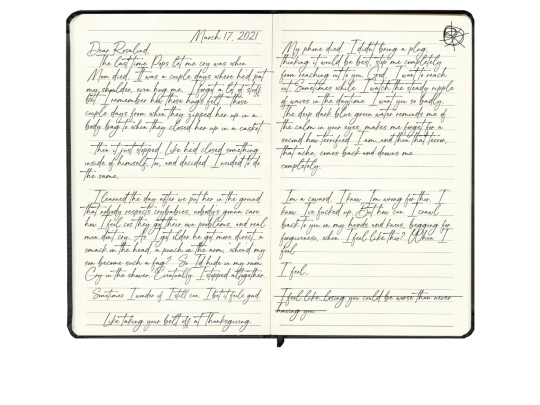 March 17, 2021
Dear Rosalind,
The last time Pops let me cry was when
Mom died. It was a couple days where he'd pat
my shoulder, even hug me. I forgot a lot of stuff
but I remember how those hugs felt. Those
couple days from when they zipped her up in a
body bag to when they closed her up in a casket.
Then it just stopped. Like he'd closed something
inside of himself, too, and decided I needed to do
the same.
I learned the day after we put her in the ground
that nobody respects crybabies, nobody's gonna care
how I feel cos they got their own problems, and real
men don't cry. As I got older he got more direct, a
smack in the head, a punch in the arm, 'when'd my
son become such a fag?' So I'd hide in my room.
Cry in the shower. Eventually I stopped altogether.
Sometimes I wonder if I still can. I bet it feels good.
Like taking your belt off at Thanksgiving.
My phone died. I didn't bring a plug,
thinking it would be best, stop me completely
from reaching out to you. God, I want to reach
out. Sometimes while I watch the steady ripple
of waves in the daytime I want you so badly.
The deep dark blue green water reminds me of
the calm in your eyes, makes me forget for a
second how terrified I am, and then that terror,
that ache, comes back and drowns me
completely.
I'm a coward. I know I'm wrong for this. I
know I've fucked up. But how can I crawl
back to you on my hands and knees, begging for
forgiveness, when I feel like this? When I
feel
I feel...
I feel like losing you could be worse than never
having you.